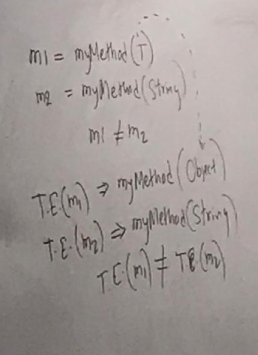 m1 = myMethod(T)
m2 = myMethod(String)
m1 ≠ m2
T.E.(m1) ⇒ myMethod(Object)
T.E.(m2) ⇒ myMethod(String)
T.E.(m1) ≠ T.E.(m2)